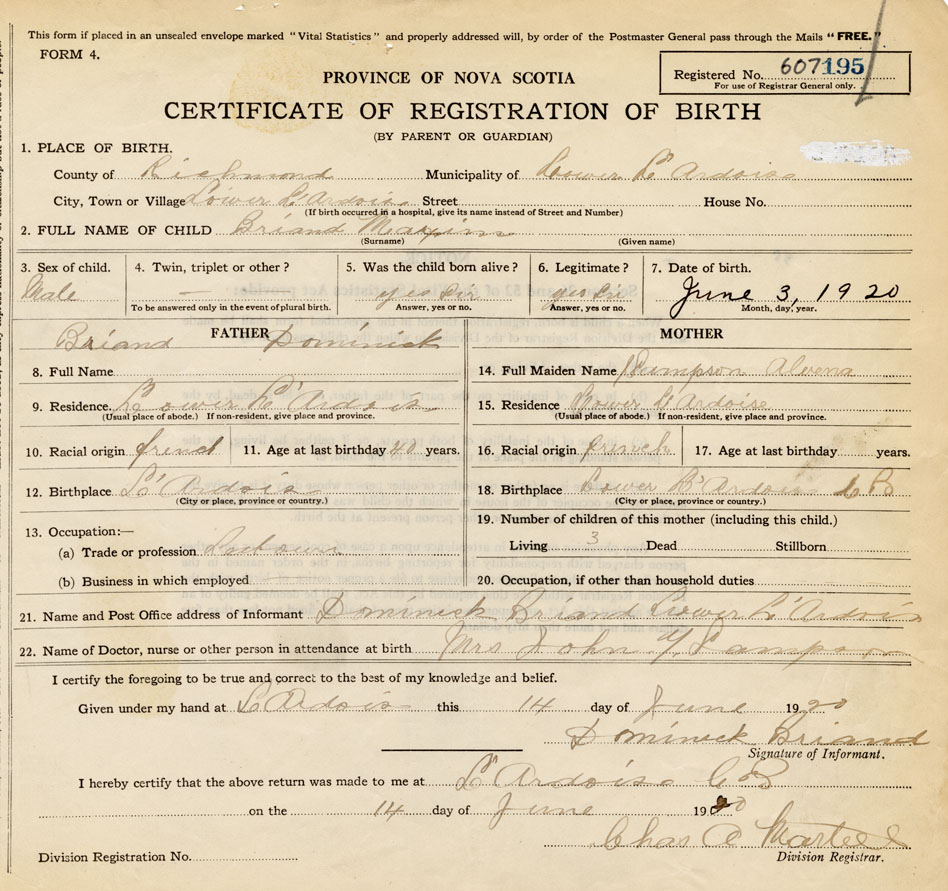 This form if placed in an unsealed envelope marked "Vital Statistics" and properly addressed will, by order of the Postmaster General pass through the Mails "FREE."
FORM 4.
PROVINCE OF NOVA SCOTIA
Registered No. 607195
For use of Registrar General only.
CERTIFICATE OF REGISTRATION OF BIRTH
(BY PARENT OR GUARDIAN)
1. PLACE OF BIRTH.
County of Richmond Municipality of Lower L'Ardoise
City, Town or Village Lower L'Ardois Street House No.
(If birth occurred in a hospital, give its name instead of Street and Number)
2. FULL NAME OF CHILD Briand Maxim
(Surname) (Given name)
3. Sex of child. 4. Twin, triplet or other? 5. Was the child born alive? 6. Legitimate? 7. Date of birth.
Male — yes sir yes sir June 3, 1920
To be answered only in the event of plural birth. Answer, yes or no. Answer, yes or no. Month, day, year.
FATHER MOTHER
Briand Dominick
8. Full Name 14. Full Maiden Name Sampson Alvena
9. Residence Lower L'Ardois 15. Residence Lower L'Ardoise
(Usual place of abode.) If non-resident, give place and province. (Usual place of abode.) If non-resident, give place and province.
10. Racial origin french 11. Age at last birthday 40 years. 16. Racial origin french 17. Age at last birthday years.
12. Birthplace L'Ardois 18. Birthplace Lower L'Ardoise C B
(City or place, province or country.) (City or place, province or country.)
13. Occupation:— 19. Number of children of this mother (including this child.)
(a) Trade or profession Living 3 Dead Stillborn
(b) Business in which employed 20. Occupation, if other than household duties
21. Name and Post Office address of Informant Dominick Briand Lower L'Ardois
22. Name of Doctor, nurse or other person in attendance at birth Mrs John Y Sampson
I certify the foregoing to be true and correct to the best of my knowledge and belief.
Given under my hand at L'Ardois this 14 day of June 1920
Dominick Briand
Signature of Informant.
I hereby certify that the above return was made to me at L'Ardoise C B
on the 14 day of June 1920
Chas C Martell
Division Registration No. Division Registrar.